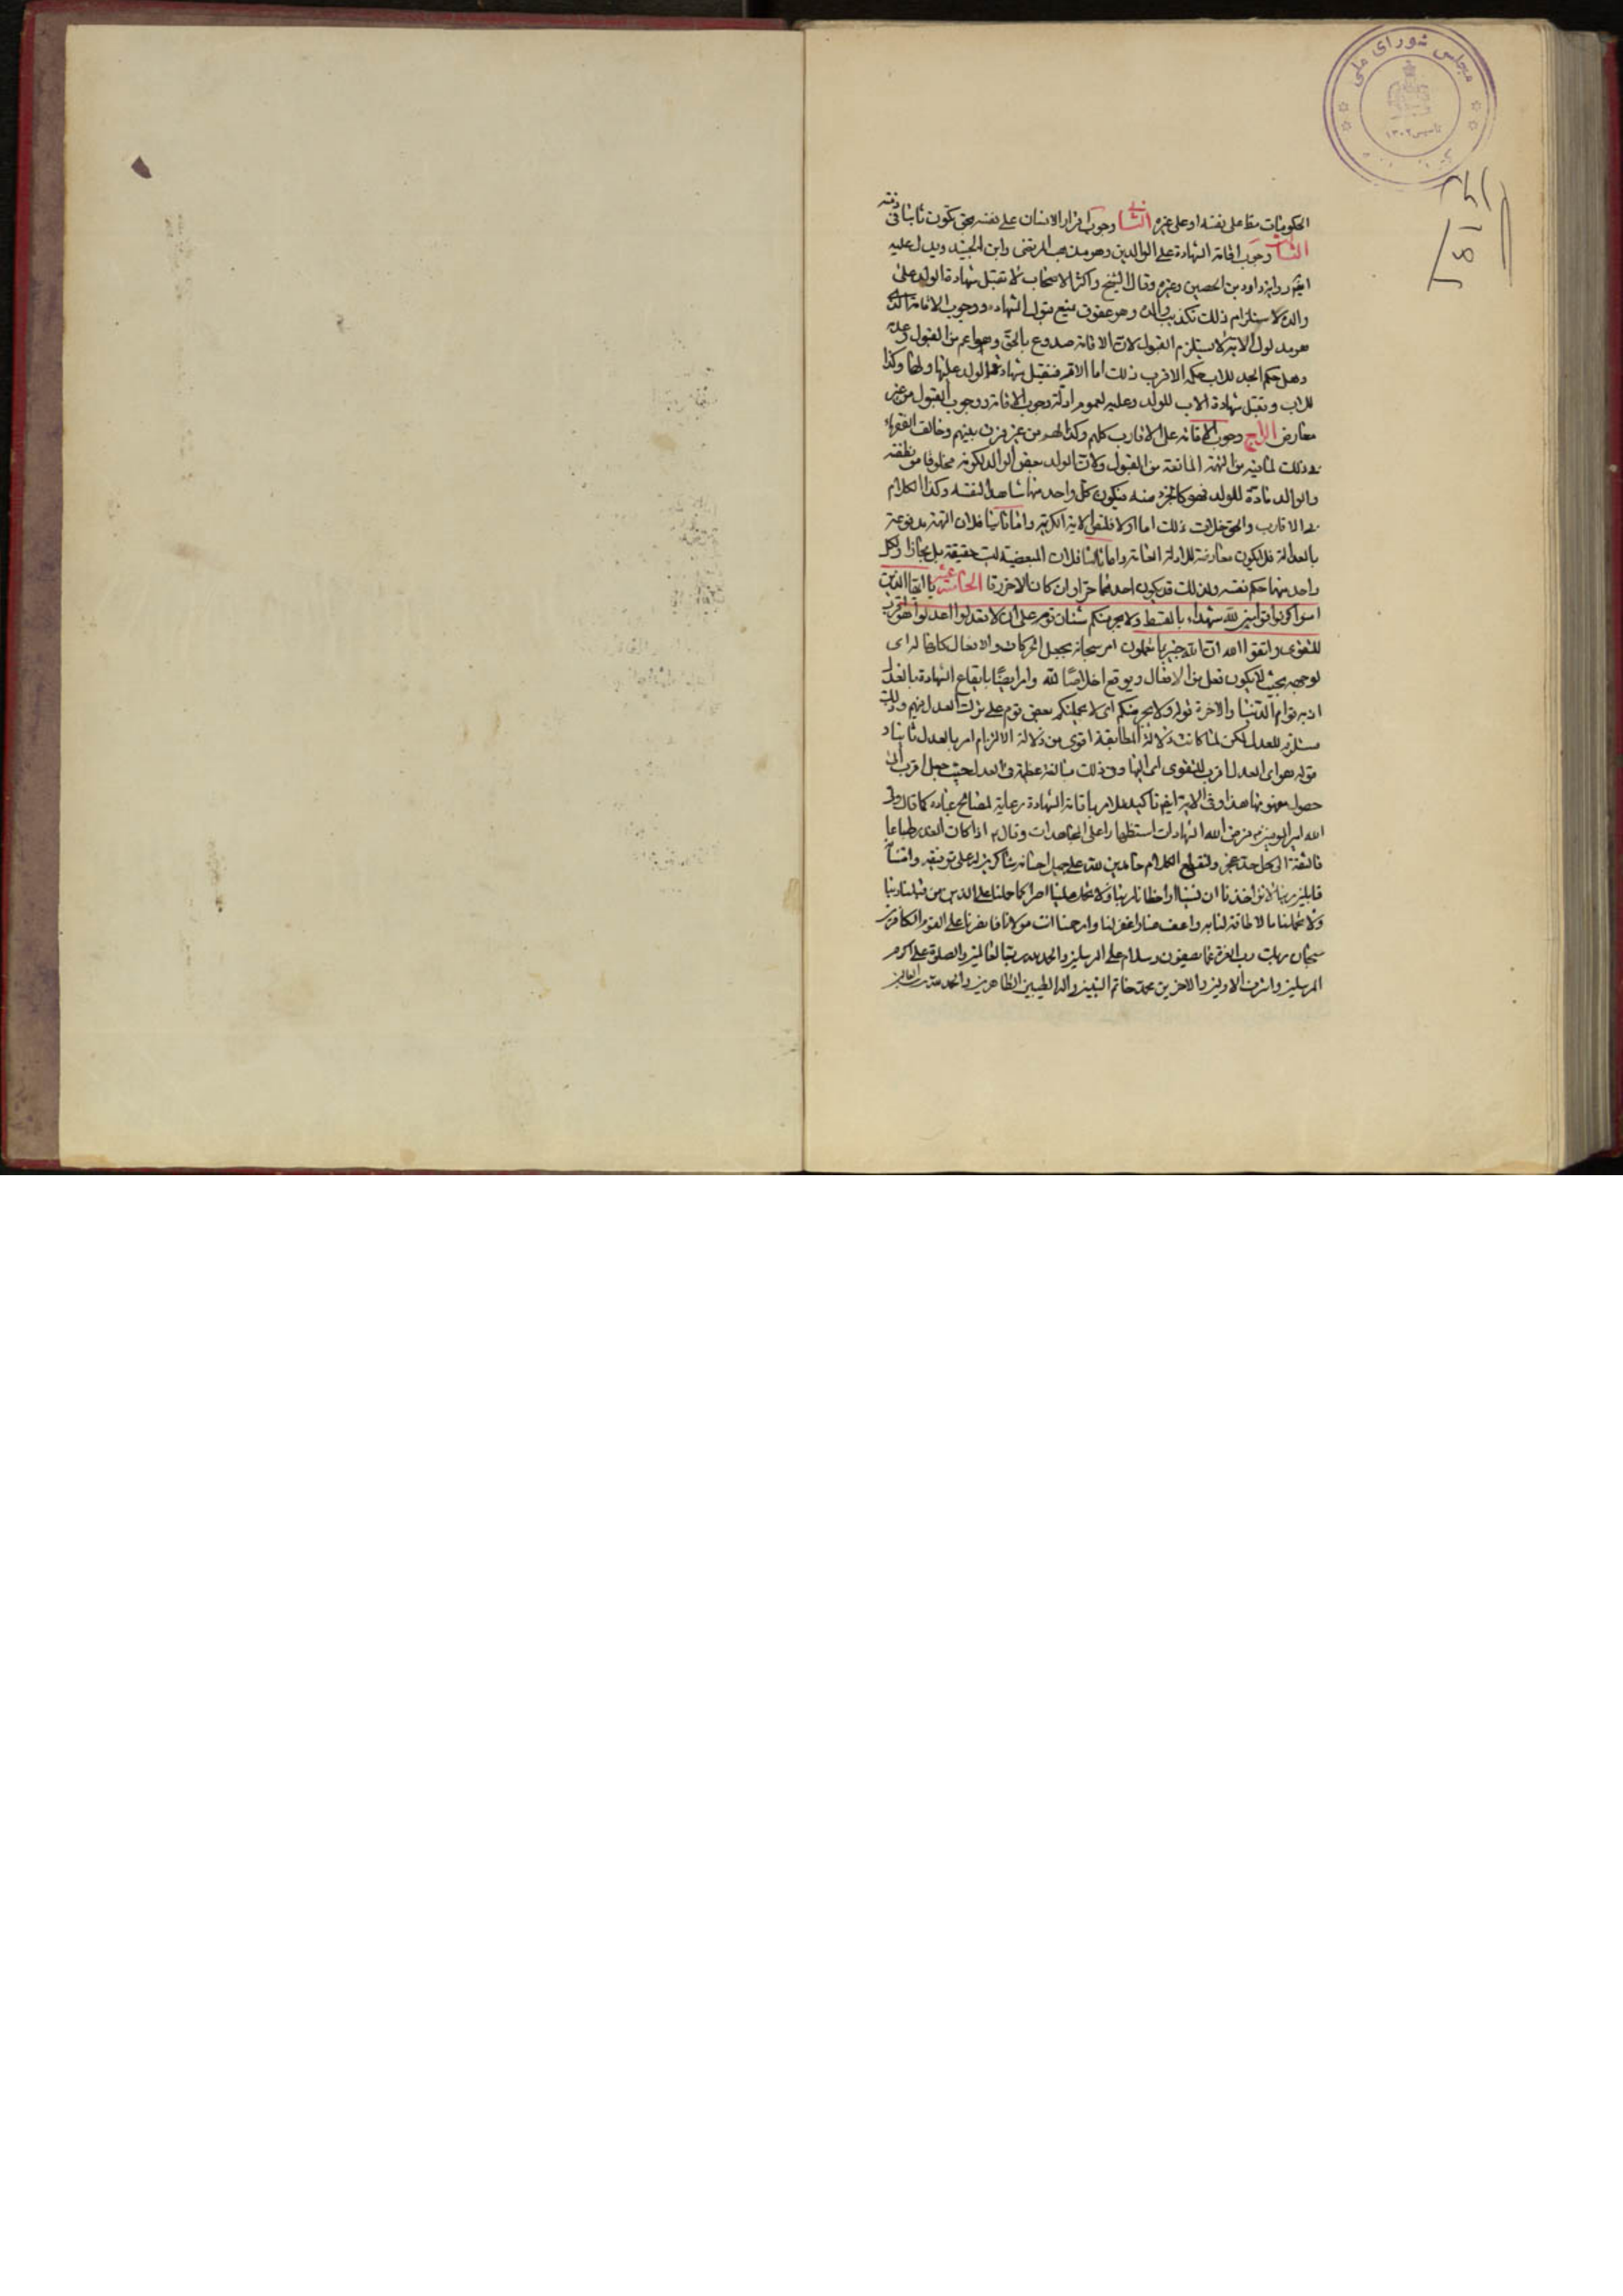 مجلس شورای ملی
تأسیس ۱۳۰۲
الحكومات مط على نفسه او على غيره الثانى وجوب اقرار الانسان على نفسه بحق يكون ثابتا فى ذمته
الثالث وجوب اقامة الشهادة على الوالدين وهو مذهب المرتضى وابن الجنيد ويدل عليه
ايضا رواية داود بن الحصين وغيره وقال الشيخ واكثر الاصحاب لا تقبل شهادة الولد على
والده لاستلزام ذلك تكذيب والده وهو عقوق منيع قبول الشهادة ووجوب الاقامة الذى
هو مدلول الاية لا يستلزم القبول لان الاقامة صدوع بالحق وهو اعم من القبول وعدمه
وهل حكم الجد للاب حكم الاقرب ذلك اما الام فتقبل شهادة الولد عليها ولها وكذا
للاب وتقبل شهادة الاب للولد وعليه لعموم ادلة وجوب الاقامة ووجوب القبول من غير
معارض الرابع وجوب الاقامة على الاقارب كلهم وكذا لهم من غير فرق بينهم وخالف الفقهاء
فى ذلك لما فيه من التهمة المانعة من القبول ولان الولد بعض الوالد لكونه مخلوقا من نطفته
والوالد مادة للولد فهو كالجزء منه فيكون كل واحد منهما شاهدا لنفسه وكذا الكلام
فى الاقارب والحق خلاف ذلك اما اولا فلنص الاية الكريمة واما ثانيا فلان التهمة مدفوعة
بالعدالة فلا يكون معارضة للادلة العامة واما ثالثا فلان البعضية ليست حقيقة بل مجازا ولكل
واحد منهما حكم نفسه ولذلك قد يكون احدهما حرا وان كان الاخر رقا الخامسة عشر يا ايها الذين
امنوا كونوا قوامين لله شهداء بالقسط ولا يجرمنكم شنان قوم على ان لا تعدلوا اعدلوا هو اقرب
للتقوى واتقوا الله ان الله خبير بما تعملون امر سبحانه بجعل الحركات والافعال كلها لله اى
لوجهه بحيث لا يكون فعل من الافعال ويوقع اخلاصا لله وامر ايضا بايقاع الشهادة بالعدل
اذ به قوام الدنيا والاخرة قوله ولا يجرمنكم اى لا يحملنكم بعض قوم على ترك العدل فيهم وذلك
مستلزم للعدل لكن لما كانت دلالة المطابقة اقوى من دلالة الالتزام امر بالعدل ثانيا و
قوله هو اى العدل اقرب للتقوى اى اليها وفى ذلك مبالغة عظيمة فى العدل حيث جعل اقرب الى
حصول معنوياتها هذا وفى الاية ايضا تاكيد للامر باقامة الشهادة رعاية لمصالح عباده كما قال ولى
الله امير المؤمنين فرض الله الشهادات استظهارا على المجاحدات وقال اذا كان الغدر طباعا
فالثقة الى كل احد عجز ولنقطع الكلام حامدين لله على جميل احسانه شاكرين له على توفيقه وامتنانه
قايلين ربنا لا تؤاخذنا ان نسينا او اخطانا ربنا ولا تحمل علينا اصرا كما حملته على الذين من قبلنا ربنا
ولا تحملنا ما لا طاقة لنا به واعف عنا واغفر لنا وارحمنا انت مولانا فانصرنا على القوم الكافرين
سبحان ربك رب العزة عما يصفون وسلام على المرسلين والحمد لله رب العالمين والصلوة على اكرم
المرسلين واشرف الاولين والاخرين محمد خاتم النبيين واله الطيبين الطاهرين والحمد لله رب العالمين